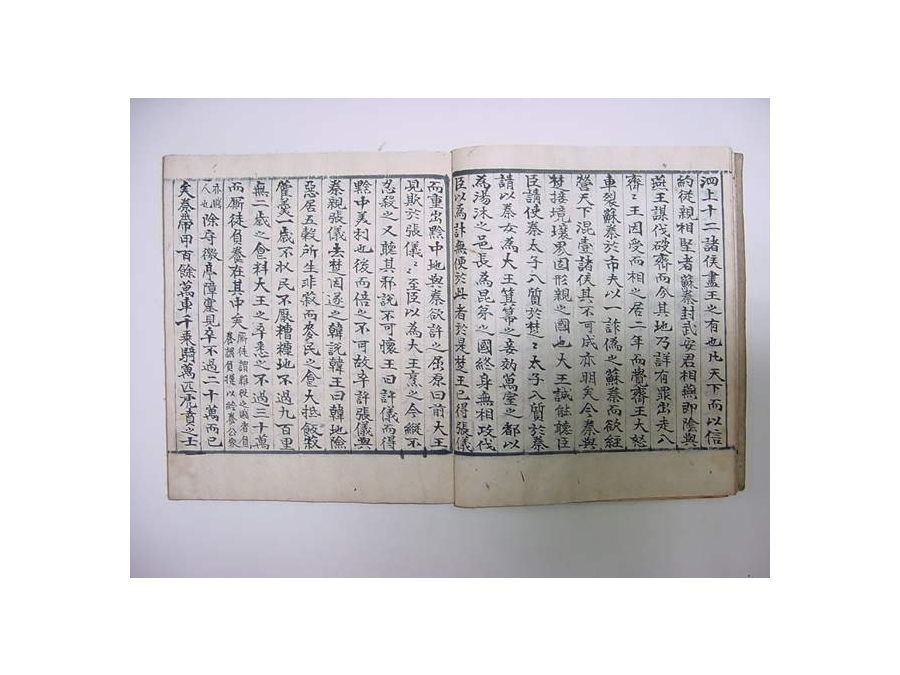 泗上十二諸侯盡王之有也凡天下而以信
約從親相堅者蘇秦封武安君相燕即陰與
燕王謀伐破齊而分其地乃詳有罪出走入
齊〻王因受而相之居二年而覺齊王大怒
車裂蘇秦於市夫以一詐僞之蘇秦而欲經
營天下混壹諸侯其不可成亦明矣今秦與
楚接境壤界固形親之國也大王誠能聽臣
臣請使秦太子入質於楚〻太子入質於秦
請以秦女為大王箕箒之妾效萬室之都以
為湯沐之邑長為昆弟之國終身無相攻伐
臣以為計無便於此者於是楚王已得張儀
而重出黔中地與秦欲許之屈原曰前大王
見欺於張儀〻至臣以為大王烹之今縱不
忍殺之又聽其邪說不可懷王曰許儀而得
黔中美利也後而倍之不可故卒許張儀與
秦親張儀去楚因遂之韓說韓王曰韓地險
惡居五穀所生非菽而麥民之食大抵飯菽
藿羹一歲不收民不厭糟糠地不過九百里
無二歲之食料大王之卒悉之不過三十萬
而廝徒負養在其中矣廝徒謂雜役之賤者負養謂負擔以給養公家
亦賤人也除守徼亭障塞見卒不過二十萬而已
矣秦帶甲百餘萬車千乘騎萬匹虎賁之士